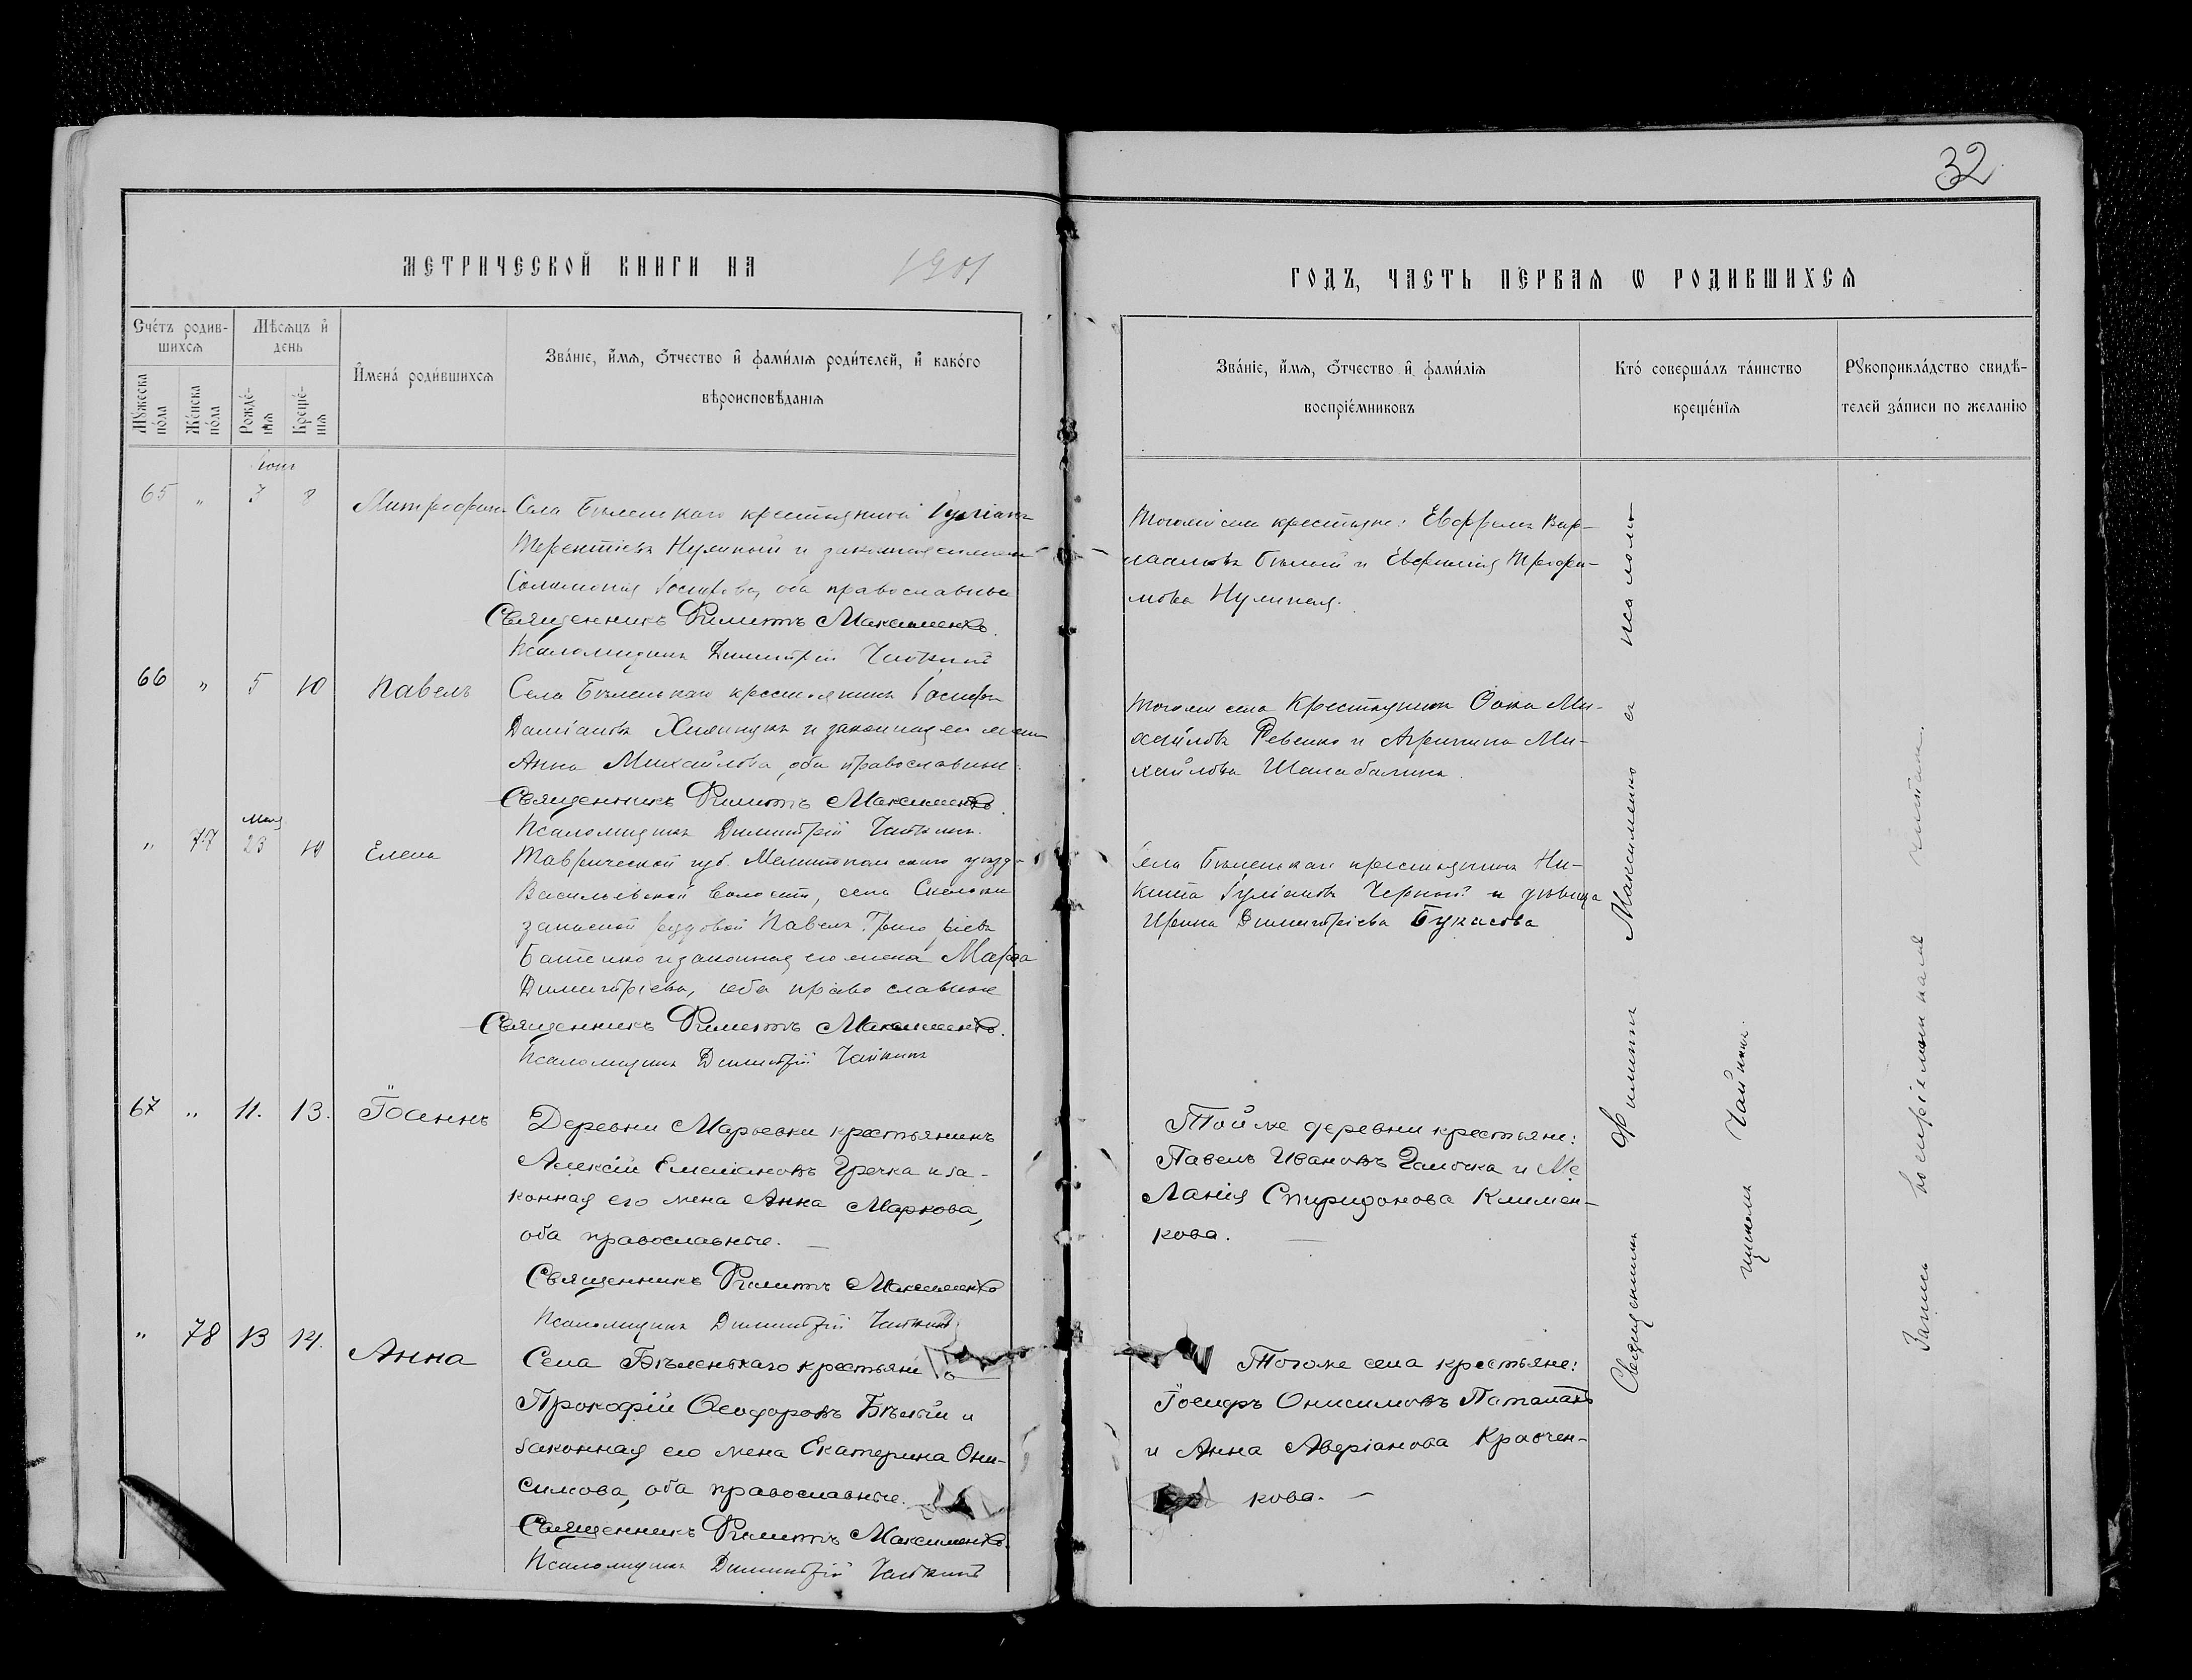 32
МЕТРИЧЕСКОЙ КНИГИ НА 1901
ГОДЪ, ЧАСТЬ ПЕРВАЯ Ѡ РОДИВШИХСЯ
Счетъ родив-
шихся
Мѣсяцъ и
день
Мужеска
пола
Женска
пола
Рожде-
нія
Креще-
нія
Имена родившихся
Званіе, имя, отчество и фамилія родителей, и какого
вѣроисповѣданія
Званіе, имя, отчество и фамилія
воспріемниковъ
Кто совершалъ таинство
крещенія
Рукоприкладство свидѣ-
телей записи по желанію
65 " 3 8 Митрофанъ
Села Бѣленькаго крестьянинъ
Терентіевъ и законная его жена
оба православные
Священникъ Филиппъ Максименко.
Псаломщикъ Димитрій Чайкинъ
Тогоже села крестьяне:
Бѣлый и Евфимія Трофи-
мова
66 " 5 10 Павелъ
Села Бѣленькаго крестьянинъ Іосифъ
Даміановъ и законная его жена
Анна Михайлова, оба православные.
Священникъ Филиппъ Максименко.
Псаломщикъ Димитрій Чайкинъ.
Тогоже села крестьянинъ Ѳома Ми-
хайловъ Ревенко и Агрипина Ми-
хайлова Шалабалина.
Мая
" 77 23 10 Елена
Таврической губ. Мелитопольскаго уѣзда
Васильевской волости, села Скельки
запасной рядовой Павелъ Григоріевъ
Батенко и законная его жена Марѳа
Димитріева, оба православные
Священникъ Филиппъ Максименко.
Псаломщикъ Димитрій Чайкинъ
Села Бѣленькаго крестьянинъ Ни-
кита Іуліановъ Черный и дѣвица
Ирина Димитріева Букасова
67 " 11. 13. Іоаннъ
Деревни Марьевки крестьянинъ
Алексій Емеліановъ Гречка и за-
конная его жена Анна Маркова,
оба православные. —
Священникъ Филиппъ Максименко
Псаломщикъ Димитрій Чайкинъ
Той же деревни крестьяне:
Павелъ Ивановъ Галочка и Ме
ланія Спиридонова Климен-
кова. —
" 78 13 14. Анна
Села Бѣленькаго крестьянинъ
Прокофій Ѳеодоровъ Бѣлый и
законная его жена Екатерина Они-
симова, оба православные. —
Священникъ Филиппъ Максименко.
Псаломщикъ Димитрій Чайкинъ
Тогоже села крестьяне:
Іосифъ Онисимовъ Паталахъ
и Анна Аверіанова Кравчен-
кова. —
Священникъ Филиппъ Максименко съ псаломъ
щикомъ Чайкинъ.
Запись воспріемникамъ читана.